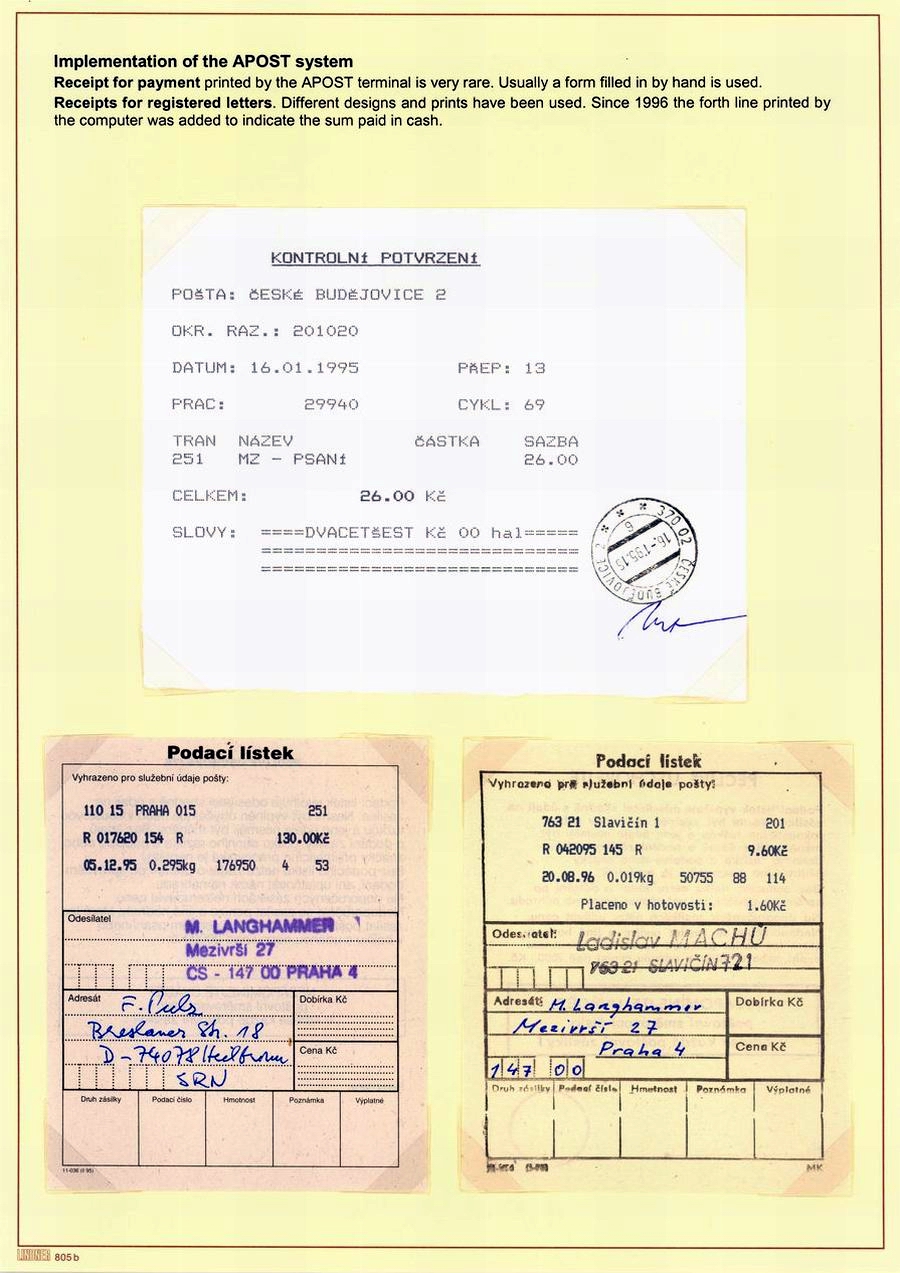 Implementation of the APOST system
Receipt for payment printed by the APOST terminal is very rare. Usually a form filled in by hand is used.
Receipts for registered letters. Different designs and prints have been used. Since 1996 the forth line printed by
the computer was added to indicate the sum paid in cash.
KONTROLNí POTVRZENí
POšTA: čESKé BUDěJOVICE 2
OKR. RAZ.: 201020
DATUM: 16.01.1995 PřEP: 13
PRAC: 29940 CYKL: 69
TRAN NáZEV čáSTKA SAZBA
251 MZ - PSANí 26.00
CELKEM: 26.00 Kč
SLOVY: ====DVACETšEST Kč 00 hal=====
=============================
=============================
370 02 ČESKÉ BUDĚJOVICE 2
16.-1.95.15
6
Podací lístek
Vyhrazeno pro služební údaje pošty:
110 15 PRAHA 015 251
R 017620 154 R 130.00Kč
05.12.95 0.295kg 176950 4 53
Odesílatel
M. LANGHAMMER
Mezivrší 27
CS - 147 00 PRAHA 4
Adresát F. Puls
Breslauer Str. 18
D-74078 Heilbronn
SRN
Dobírka Kč
Cena Kč
Druh zásilky Podací číslo Hmotnost Poznámka Výplatné
11-036 (II 95)
Podací lístek
Vyhrazeno pro služební údaje pošty:
763 21 Slavičín 1 201
R 042095 145 R 9.60Kč
20.08.96 0.019kg 50755 88 114
Placeno v hotovosti: 1.60Kč
Odesílatel: Ladislav MACHŮ
763 21 SLAVIČÍN 721
Adresát: M. Langhammer
Mezivrší 27
Praha 4
147 00
Dobírka Kč
Cena Kč
Druh zásilky Podací číslo Hmotnost Poznámka Výplatné
MK
LINDNER 805b